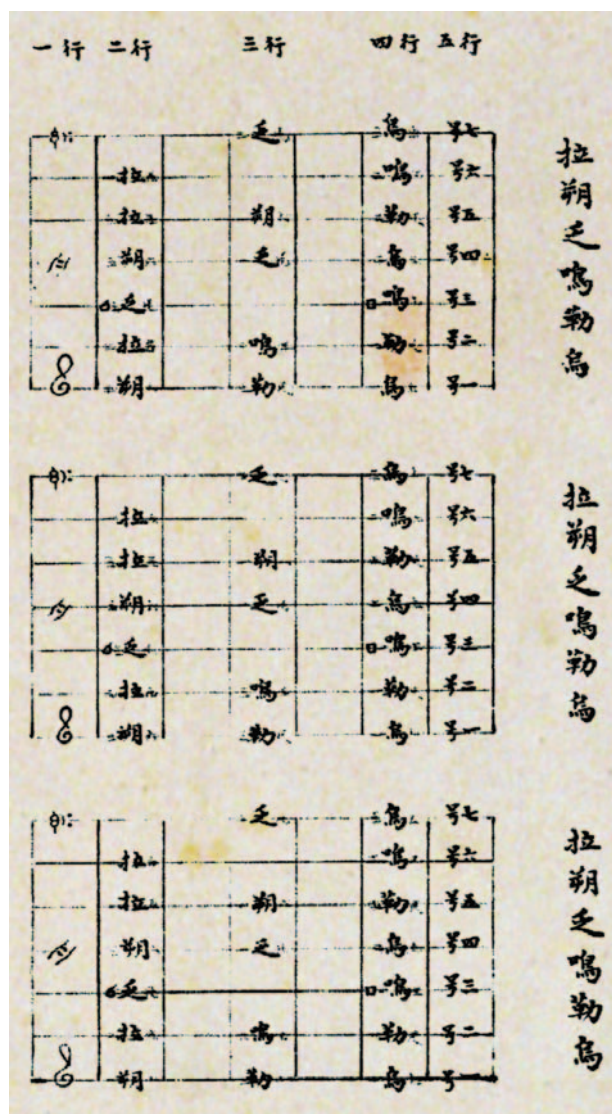 一行 二行 三行 四行 五行
乏 烏 号七
拉 鳴 号六
拉 朔 勒 号五
朔 乏 烏 号四
乏 鳴 号三
拉 鳴 勒 号二
朔 勒 烏 号一
拉朔乏鳴勒烏
乏 烏 号七
拉 鳴 号六
拉 朔 勒 号五
朔 乏 烏 号四
乏 鳴 号三
拉 鳴 勒 号二
朔 勒 烏 号一
拉朔乏鳴勒烏
乏 烏 号七
拉 鳴 号六
拉 朔 勒 号五
朔 乏 烏 号四
乏 鳴 号三
拉 鳴 勒 号二
朔 勒 烏 号一
拉朔乏鳴勒烏